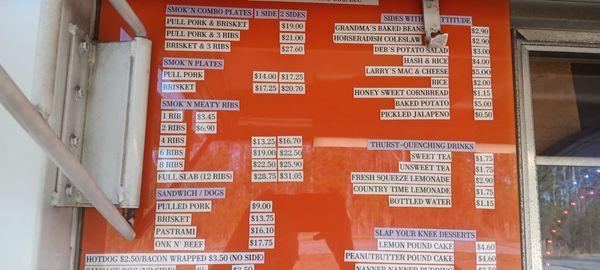 SMOK'N COMBO PLATES 1 SIDE 2 SIDES
PULL PORK & BRISKET $19.00
PULL PORK & 3 RIBS $21.00
BRISKET & 3 RIBS $27.60
SMOK'N PLATES
PULL PORK $14.00 $17.25
BRISKET $17.25 $20.70
SMOK'N MEATY RIBS
1 RIB $3.45
2 RIBS $6.90
4 RIBS $13.25 $16.70
6 RIBS $19.00 $22.50
8 RIBS $22.50 $25.90
FULL SLAB (12 RIBS) $28.75 $31.05
SANDWICH / DOGS
PULLED PORK $9.00
BRISKET $13.75
PASTRAMI $16.10
ONK N' BEEF $17.75
HOTDOG $2.50/BACON WRAPPED $3.50 (NO SIDE)
SIDES WITH ATTITUDE
GRANDMA'S BAKED BEANS $2.90
HORSERADISH COLESLAW $2.90
DEB'S POTATO SALAD $3.00
HASH & RICE $4.00
LARRY'S MAC & CHEESE $5.00
RICE $2.00
HONEY SWEET CORNBREAD $1.15
BAKED POTATO $5.00
PICKLED JALAPENO $0.50
THURST-QUENCHING DRINKS
SWEET TEA $1.75
UNSWEET TEA $1.75
FRESH SQUEEZE LEMONADE $2.90
COUNTRY TIME LEMONADE $1.75
BOTTLED WATER $1.15
SLAP YOUR KNEE DESSERTS
LEMON POUND CAKE $4.60
PEANUTBUTTER POUND CAKE $4.60